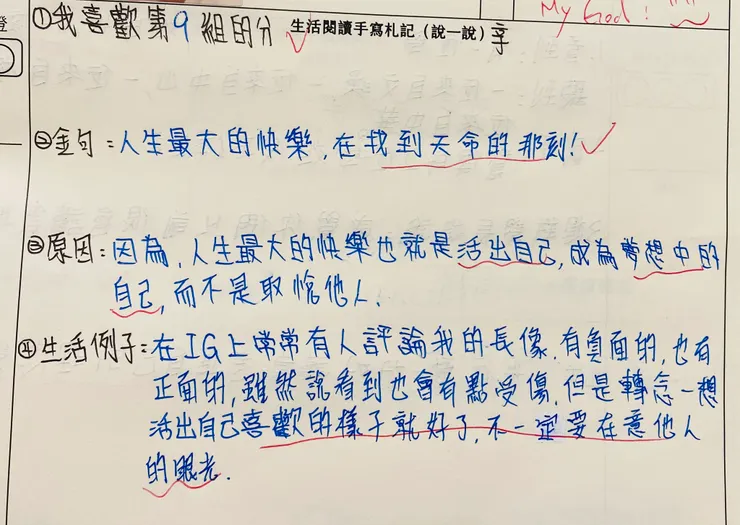 My God!
①我喜歡第9組的分享
生活閱讀手寫札記（說一說）
②金句：人生最大的快樂，在找到天命的那刻！
③原因：因為，人生最大的快樂也就是活出自己，成為夢想中的
自己，而不是取悅他人.
④生活例子：在IG上常常有人評論我的長像.有負面的,也有
正面的,雖然說看到也會有點受傷.但是轉念一想
活出自己喜歡的樣子就好了.不一定要在意他人
的眼光.